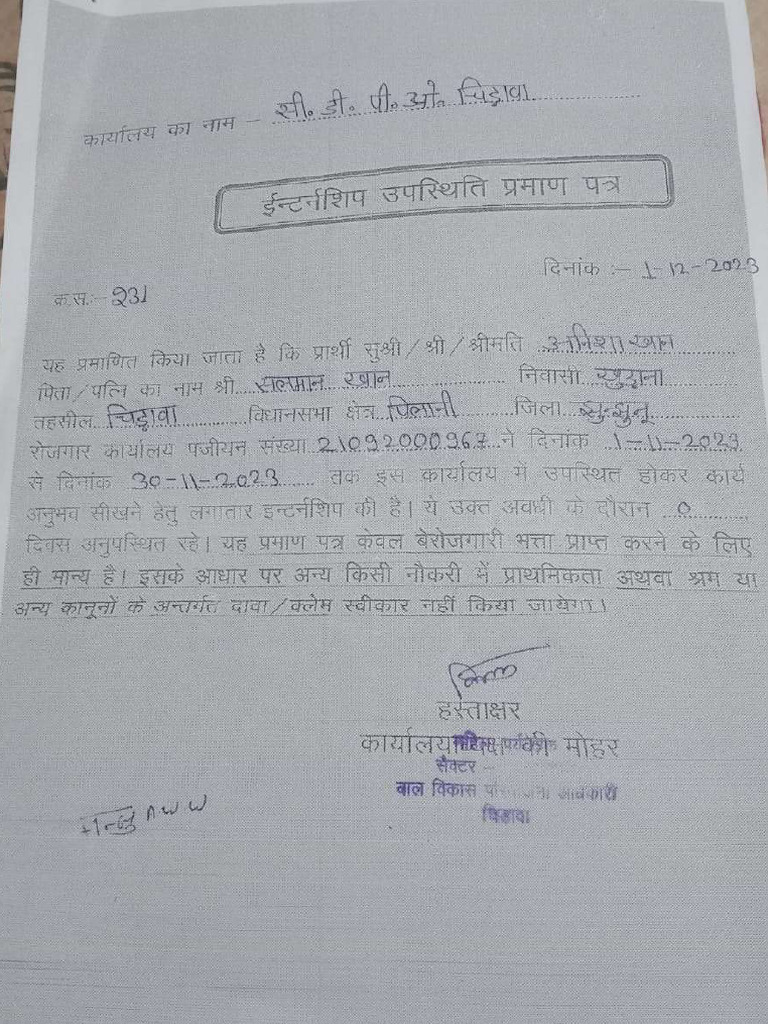 कार्यालय का नाम – सी. डी. पी. ओ. चिड़ावा
ईन्टर्नशिप उपस्थिति प्रमाण पत्र
दिनांक :– 1-12-2023
क्र.स.:– 231
यह प्रमाणित किया जाता है कि प्रार्थी सुश्री/श्री/श्रीमति अनिशा खान
पिता/पत्नि का नाम श्री सलमान खान निवासी खुदाना
तहसील चिड़ावा विधानसभा क्षेत्र पिलानी जिला झुन्झुनू
रोजगार कार्यालय पंजीयन संख्या 21092000967 ने दिनांक 1-11-2023
से दिनांक 30-11-2023 तक इस कार्यालय में उपस्थित होकर कार्य
अनुभव सीखने हेतु लगातार इन्टर्नशिप की है। ये उक्त अवधी के दौरान 0
दिवस अनुपस्थित रहे। यह प्रमाण पत्र केवल बेरोजगारी भत्ता प्राप्त करने के लिए
ही मान्य है। इसके आधार पर अन्य किसी नौकरी में प्राथमिकता अथवा श्रम या
अन्य कानूनों के अन्तर्गत दावा/क्लेम स्वीकार नहीं किया जायेगा।
हस्ताक्षर
कार्यालय की मोहर
सैक्टर –
बाल विकास
चिडावा
मन्जु AWW